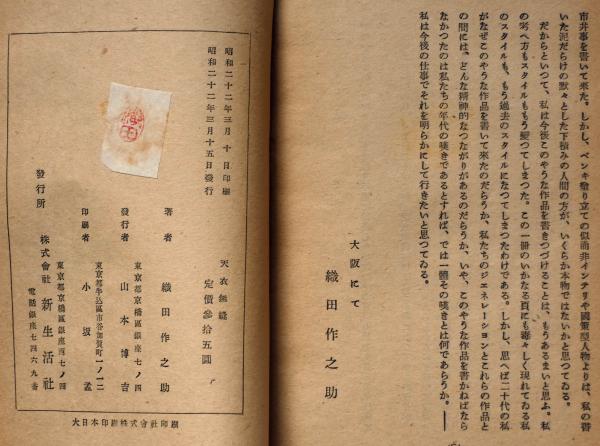 市井事を書いて来た。しかし、ペンキ塗り立ての似而非インテリや國策型人物よりは、私の書
いた泥だらけの默々とした下積みの人間の方が、いくらか本物ではないかと思つてゐる。
だからといつて、私は今後このやうな作品を書きつづけることは、もうあるまいと思ふ。私
の考へ方もスタイルももう變つてしまつた。この一册のいかなる頁にも毒々しく現れてゐる私
のスタイルも、もう過去のスタイルになつてしまつたわけである。しかし、思へば二十代の私
がなぜこのやうな作品を書いて來たのだらうか、私たちのジェネレーションとこれらの作品と
の間には、どんな精神的なつながりがあるのだらうか、いや、このやうな作品を書かねばなら
なかつたのは私たちの年代の嘆きであるとすれば、では一體その嘆きとは何であらうか。――
私は今後の仕事でそれを明らかにして行きたいと思つてゐる。
大阪にて
織田作之助
昭和二十二年三月十日印刷
昭和二十二年三月十五日發行
天衣無縫
定價參拾五圓
著者 織田作之助
東京都京橋區銀座七ノ四
發行者 山本博吉
東京都牛込區市谷加賀町一ノ一二
印刷者 小坂孟
東京都京橋區銀座西七ノ四
發行所 株式會社 新生活社
電話銀座七四六九番
大日本印刷株式會社印刷